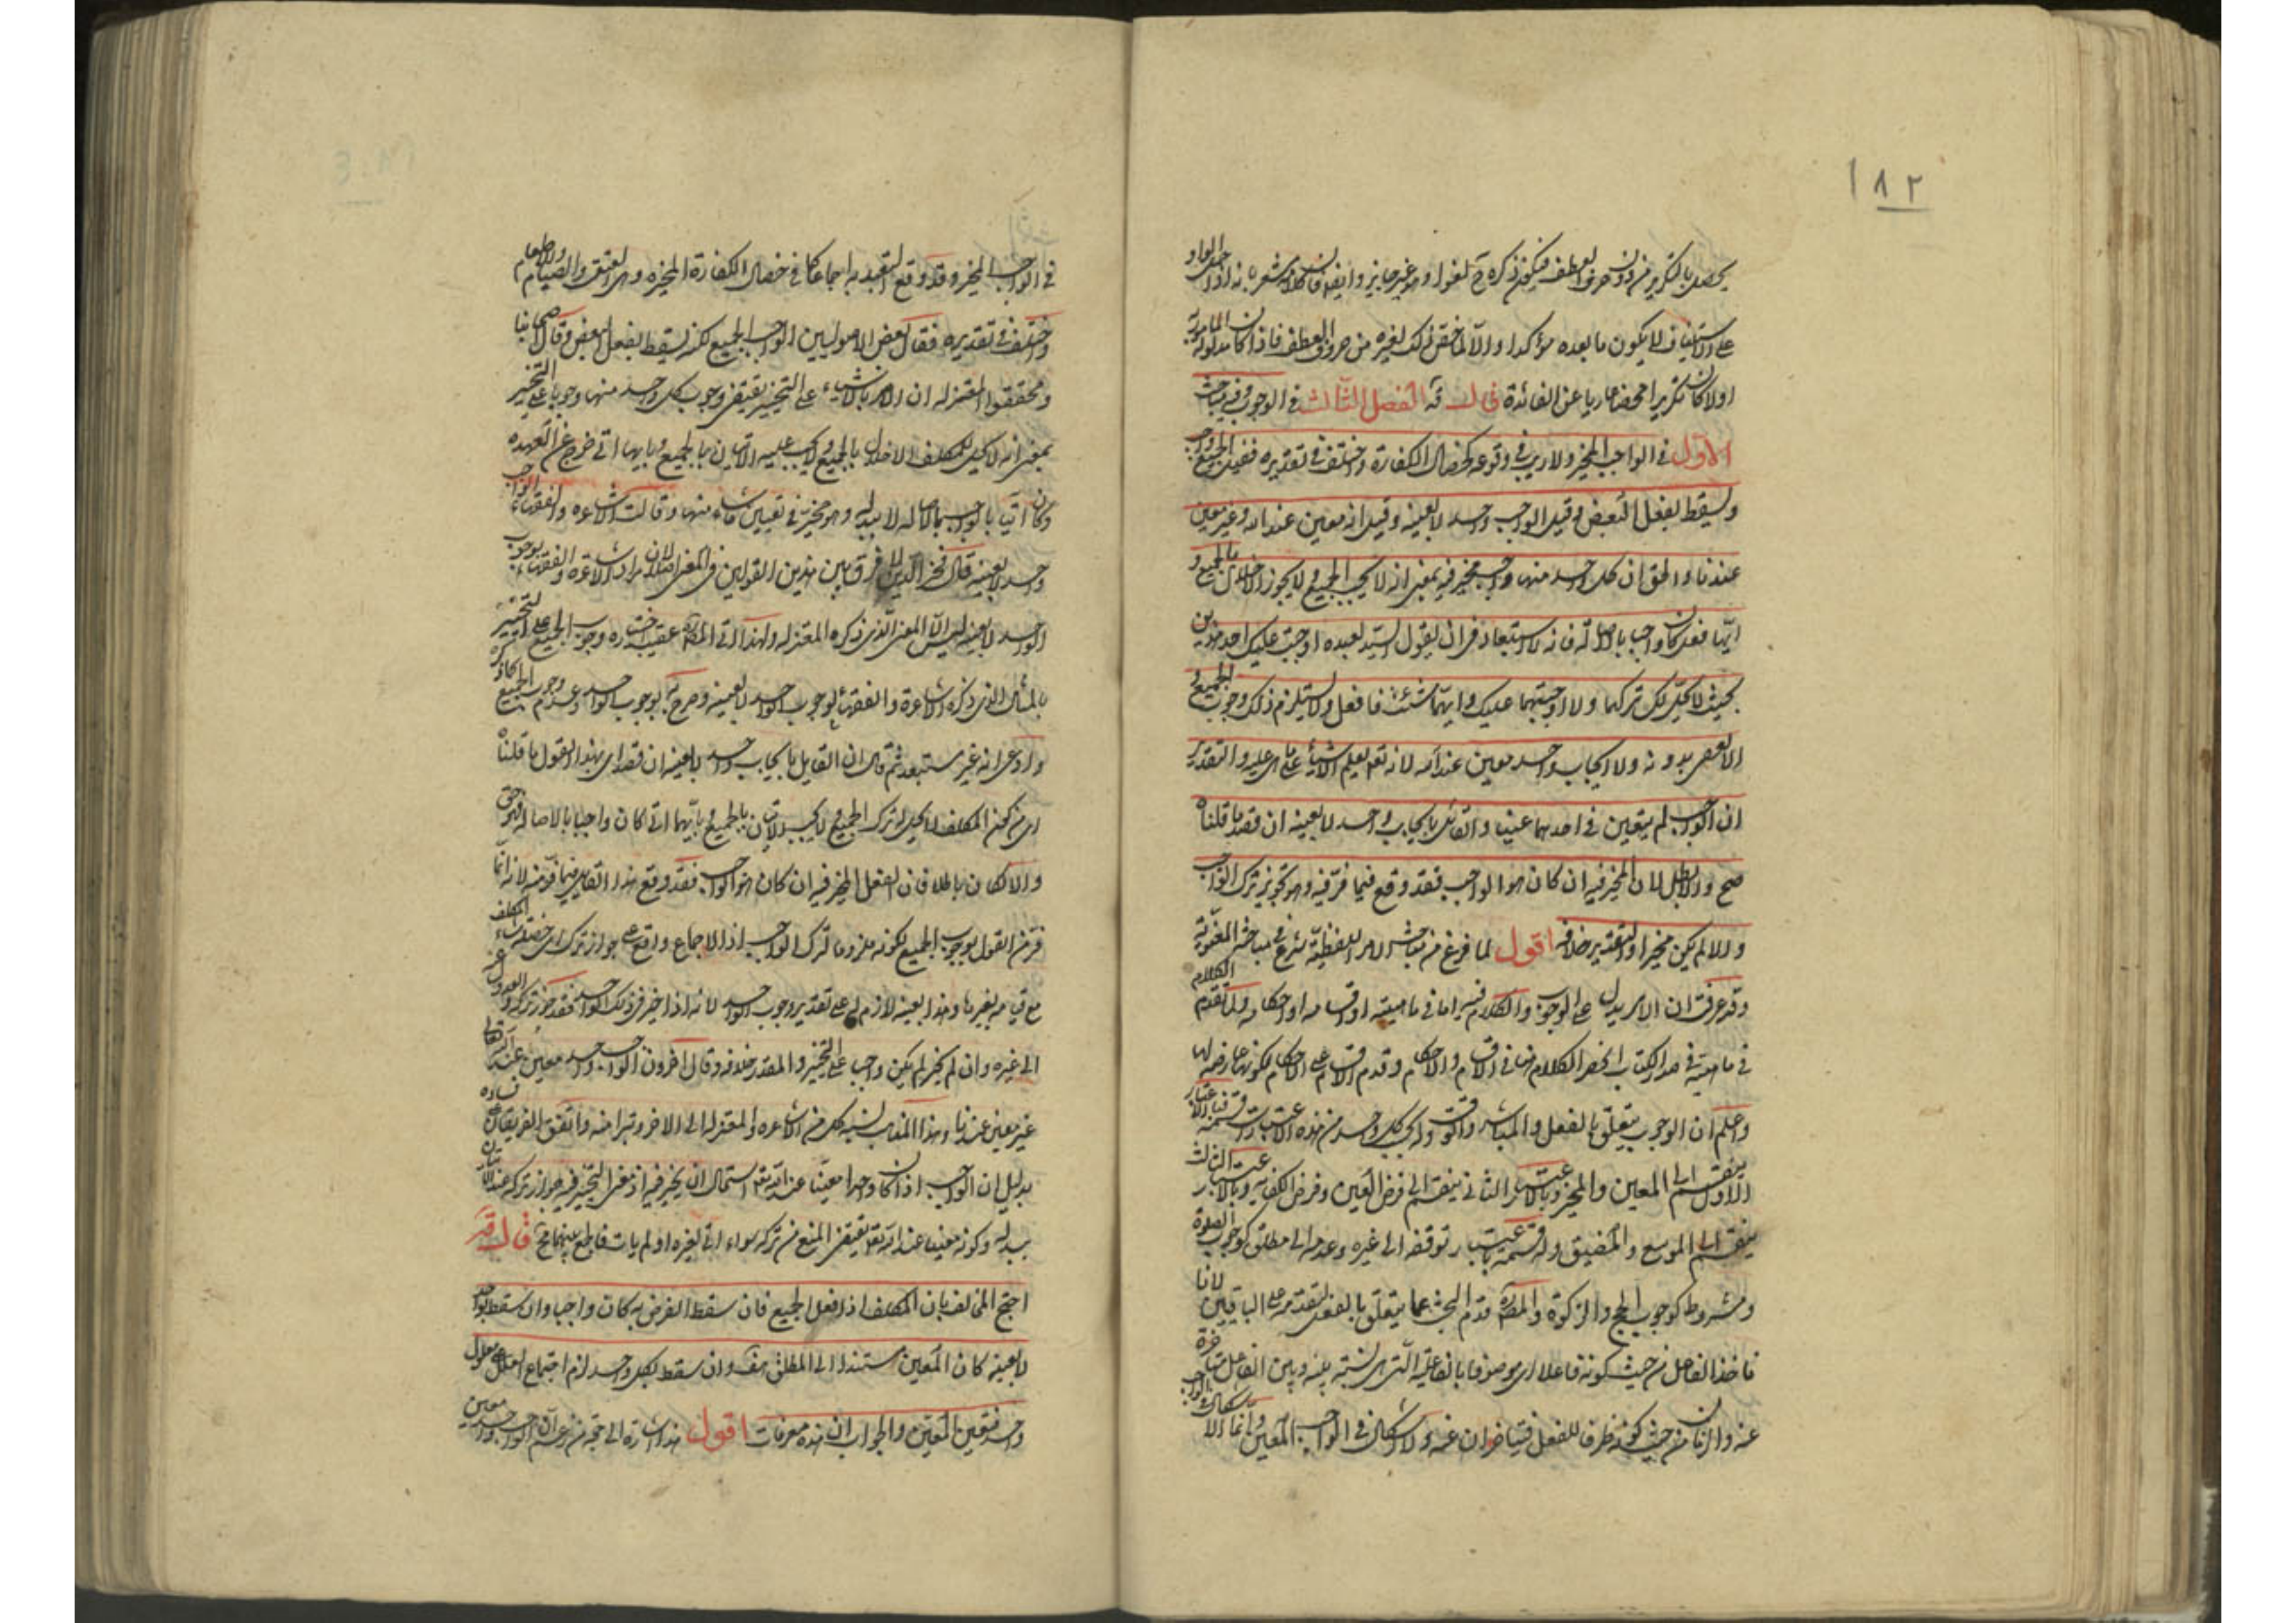 ١٨٢
يحصل بالتكرير من دون حرف العطف فيكون ذكره ح لغوا وهو غير جايز وايضا فان كلامه مشعر بانه اذا حمل الواو
على الاستيناف لا يكون ما بعده مؤكدا والا لما خص ذلك لغيره من حروف العطف فاذا كان المامور به مدلوله
اولا كان تكريرا محضا عاريا عن الفائدة قال قه الفصل الثالث في الوجوب وفيه مباحث
الاول في الواجب المخير ولا ريب في وقوعه كخصال الكفارة واختلف في تقديره فقيل الجميع واجب
ويسقط بفعل البعض وقيل الواجب واحد لا بعينه وقيل انه معين عند الله وغير معين
عندنا والحق ان كل واحد منها واجب مخير فيه بمعنى انه لا يجب الجميع ولا يجوز الاخلال بالجميع و
ايها فعل كان واجبا بالاصالة فانه لا استبعاد في ان يقول السيد لعبده اوجبت عليك احد هذين
بحيث لا يحل لك تركهما ولا اوجبتهما عليك وايهما شئت فافعل ولا يستلزم ذلك وجوب الجميع و
الا لعصى بدونه ولا ايجاب واحد معين عند الله لانه تعالى يعلم الاشياء على ما هي عليه والتقدير
ان الواجب لم يتعين في احدهما عينا والقائل بايجاب واحد لا بعينه ان قصد ما قلناه
صح والا بطل لان المخير فيه ان كان هو الواجب فقد وقع فيما فر منه وهو تجويز ترك الواجب
والا لم يكن مخيرا والتقدير خلافه اقول لما فرغ من مباحث الامر اللفظية شرع في مباحثه المعنوية
وقد عرفت ان الامر يدل على الوجوب والكلام فيه اما في ماهيته او اقسامه او احكامه ولما تقدم الكلام
في ماهيته في صدر الكتاب انحصر الكلام هنا في الاقسام والاحكام وقدم الاقسام على الاحكام لكونها عارضة لها
واعلم ان الوجوب يتعلق بالفعل والمباشر والوقت وله بحسب كل واحد من هذه الاعتبارات قسمة فباعتبار
الاول ينقسم الى المعين والمخير وبالاعتبار الثاني ينقسم الى فرض العين وفرض الكفاية وبالاعتبار الثالث
ينقسم الى الموسع والمضيق وله قسمة باعتبار توقفه الى غيره وعدمه الى مطلق كوجوب الصلوة
ومشروط كوجوب الحج والزكوة والمص قدم البحث عما يتعلق بالفعل لتقدمه على الباقيين لانا
ناخذ الفاعل من حيث كونه فاعلا اي موصوفا بالفاعلية التي هي نسبة بينه وبين الفعل متاخرة
عنه والزمان من حيث كونه ظرفا للفعل فيتاخران عنه ولا اشكال في الواجب المعين وانما الاشكال
في الواجب المخير وقد وقع التعبد به اجماعا كما في خصال الكفارة المخيرة وهي العتق والصيام والاطعام
واختلف في تقديره فقال بعض الاصوليين الواجب الجميع لكنه يسقط بفعل البعض وقال اصحابنا
ومحققوا المعتزلة ان الامر بالاشياء على التخيير يقتضي وجوب كل واحد منها وجوبا على التخيير
بمعنى انه لا يحل للمكلف الاخلال بالجميع ولا يجب عليه الاتيان بالجميع وبايها اتى خرج عن العهدة
وكان اتيا بالواجب بالاصالة لا ببدله وهو مخير في تعيين ما شاء منها وقالت الاشاعرة والفقهاء الواجب
واحد لا بعينه قال فخر الدين لا فرق بين هذين القولين في المعنى لان مراد الاشاعرة والفقهاء بوجوب
الواحد لا بعينه ليس الا المعنى الذي ذكره المعتزلة ولهذا اتى المص عقيب اختياره وجوب الجميع على التخيير
بالمثال الذي ذكره الاشاعرة والفقهاء لوجوب واحد لا بعينه وصرح به بوجوب الواحد وعدم وجوب الجميع
وادعى انه غير مستبعد ثم قال ان القايل بايجاب واحد لا بعينه ان قصد اي بهذا القول ما قلناه
اي من كون المكلف لا يحل له ترك الجميع ولا يجب الاتيان بالجميع وبايهما اتى كان واجبا بالاصالة فهو حق
والا كان باطلا فان الفعل المخير فيه ان كان هو الواجب فقد وقع هذا القايل فيما فر منه لانه انما
فر من القول بوجوب الجميع لكونه ملزوما لترك الواجب اذ الاجماع واقع على جواز ترك اي خصلة شاء المكلف
مع قيامه بغيرها وهذا بعينه لازم له على تقدير وجوب الواحد لانه اذا خير في ذلك الواحد فقد جوز تركه والعدول عنه
الى غيره وان لم يخير لم يكن واجب على التخيير والمقدر خلافه وقال اخرون الواجب واحد معين عند الله تعالى
غير معين عندنا وهذا المذهب ينسبه كل من الاشاعرة والمعتزلة الى الاخر وتبرا منه واتفق الفريقان على فساده
بدليل ان الواجب اذا كان واحدا معينا عند الله تعالى استحال ان يخير فيه اذ معنى التخيير فيه جواز تركه عند الاتيان
ببدله وكونه معينا عند الله تعالى يقتضي المنع من تركه سواء اتى بغيره او لم يات فالجمع بينهما مح قال قه
احتج المخالف بان المكلف اذا فعل الجميع فان سقط الفرض به كان واجبا وان سقط بواحد
لا بعينه كان المعين مستندا الى المطلق هف وان سقط بكل واحد لزم اجتماع العلل على معلول
واحد فتعين المعين والجواب ان هذه معرفات اقول هذا اشارة الى حجة من زعم ان الواجب واحد معين